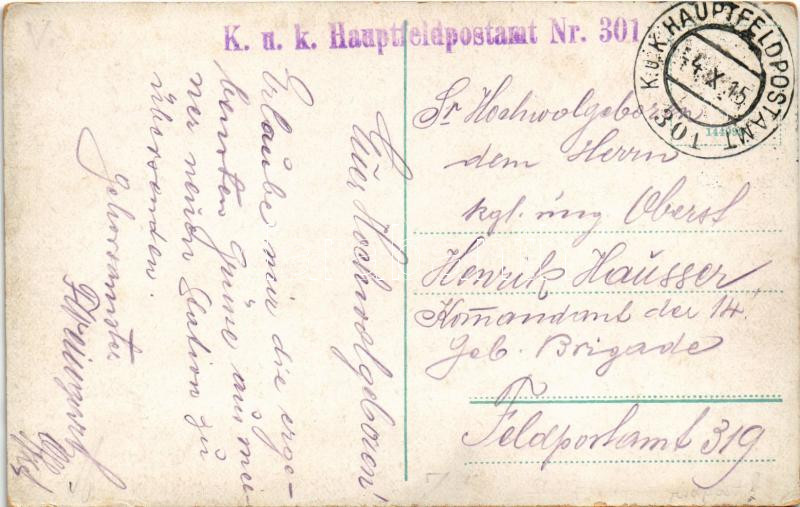 K. u. k. Hauptfeldpostamt Nr. 301
K.u.K. HAUPTFELDPOSTAMT
301
14.X.15
Euer Hochwolgeboren!
Erlaube mir die erge-
bensten Grüsse aus mei-
ner neuen Station zu
übersenden.
gehorsamster
Sr Hochwolgeboren
dem Herrn
kgl. ung Oberst
Henrik Hausser
Kom̄andant der 14.
Geb. Brigade
Feldpostamt 319